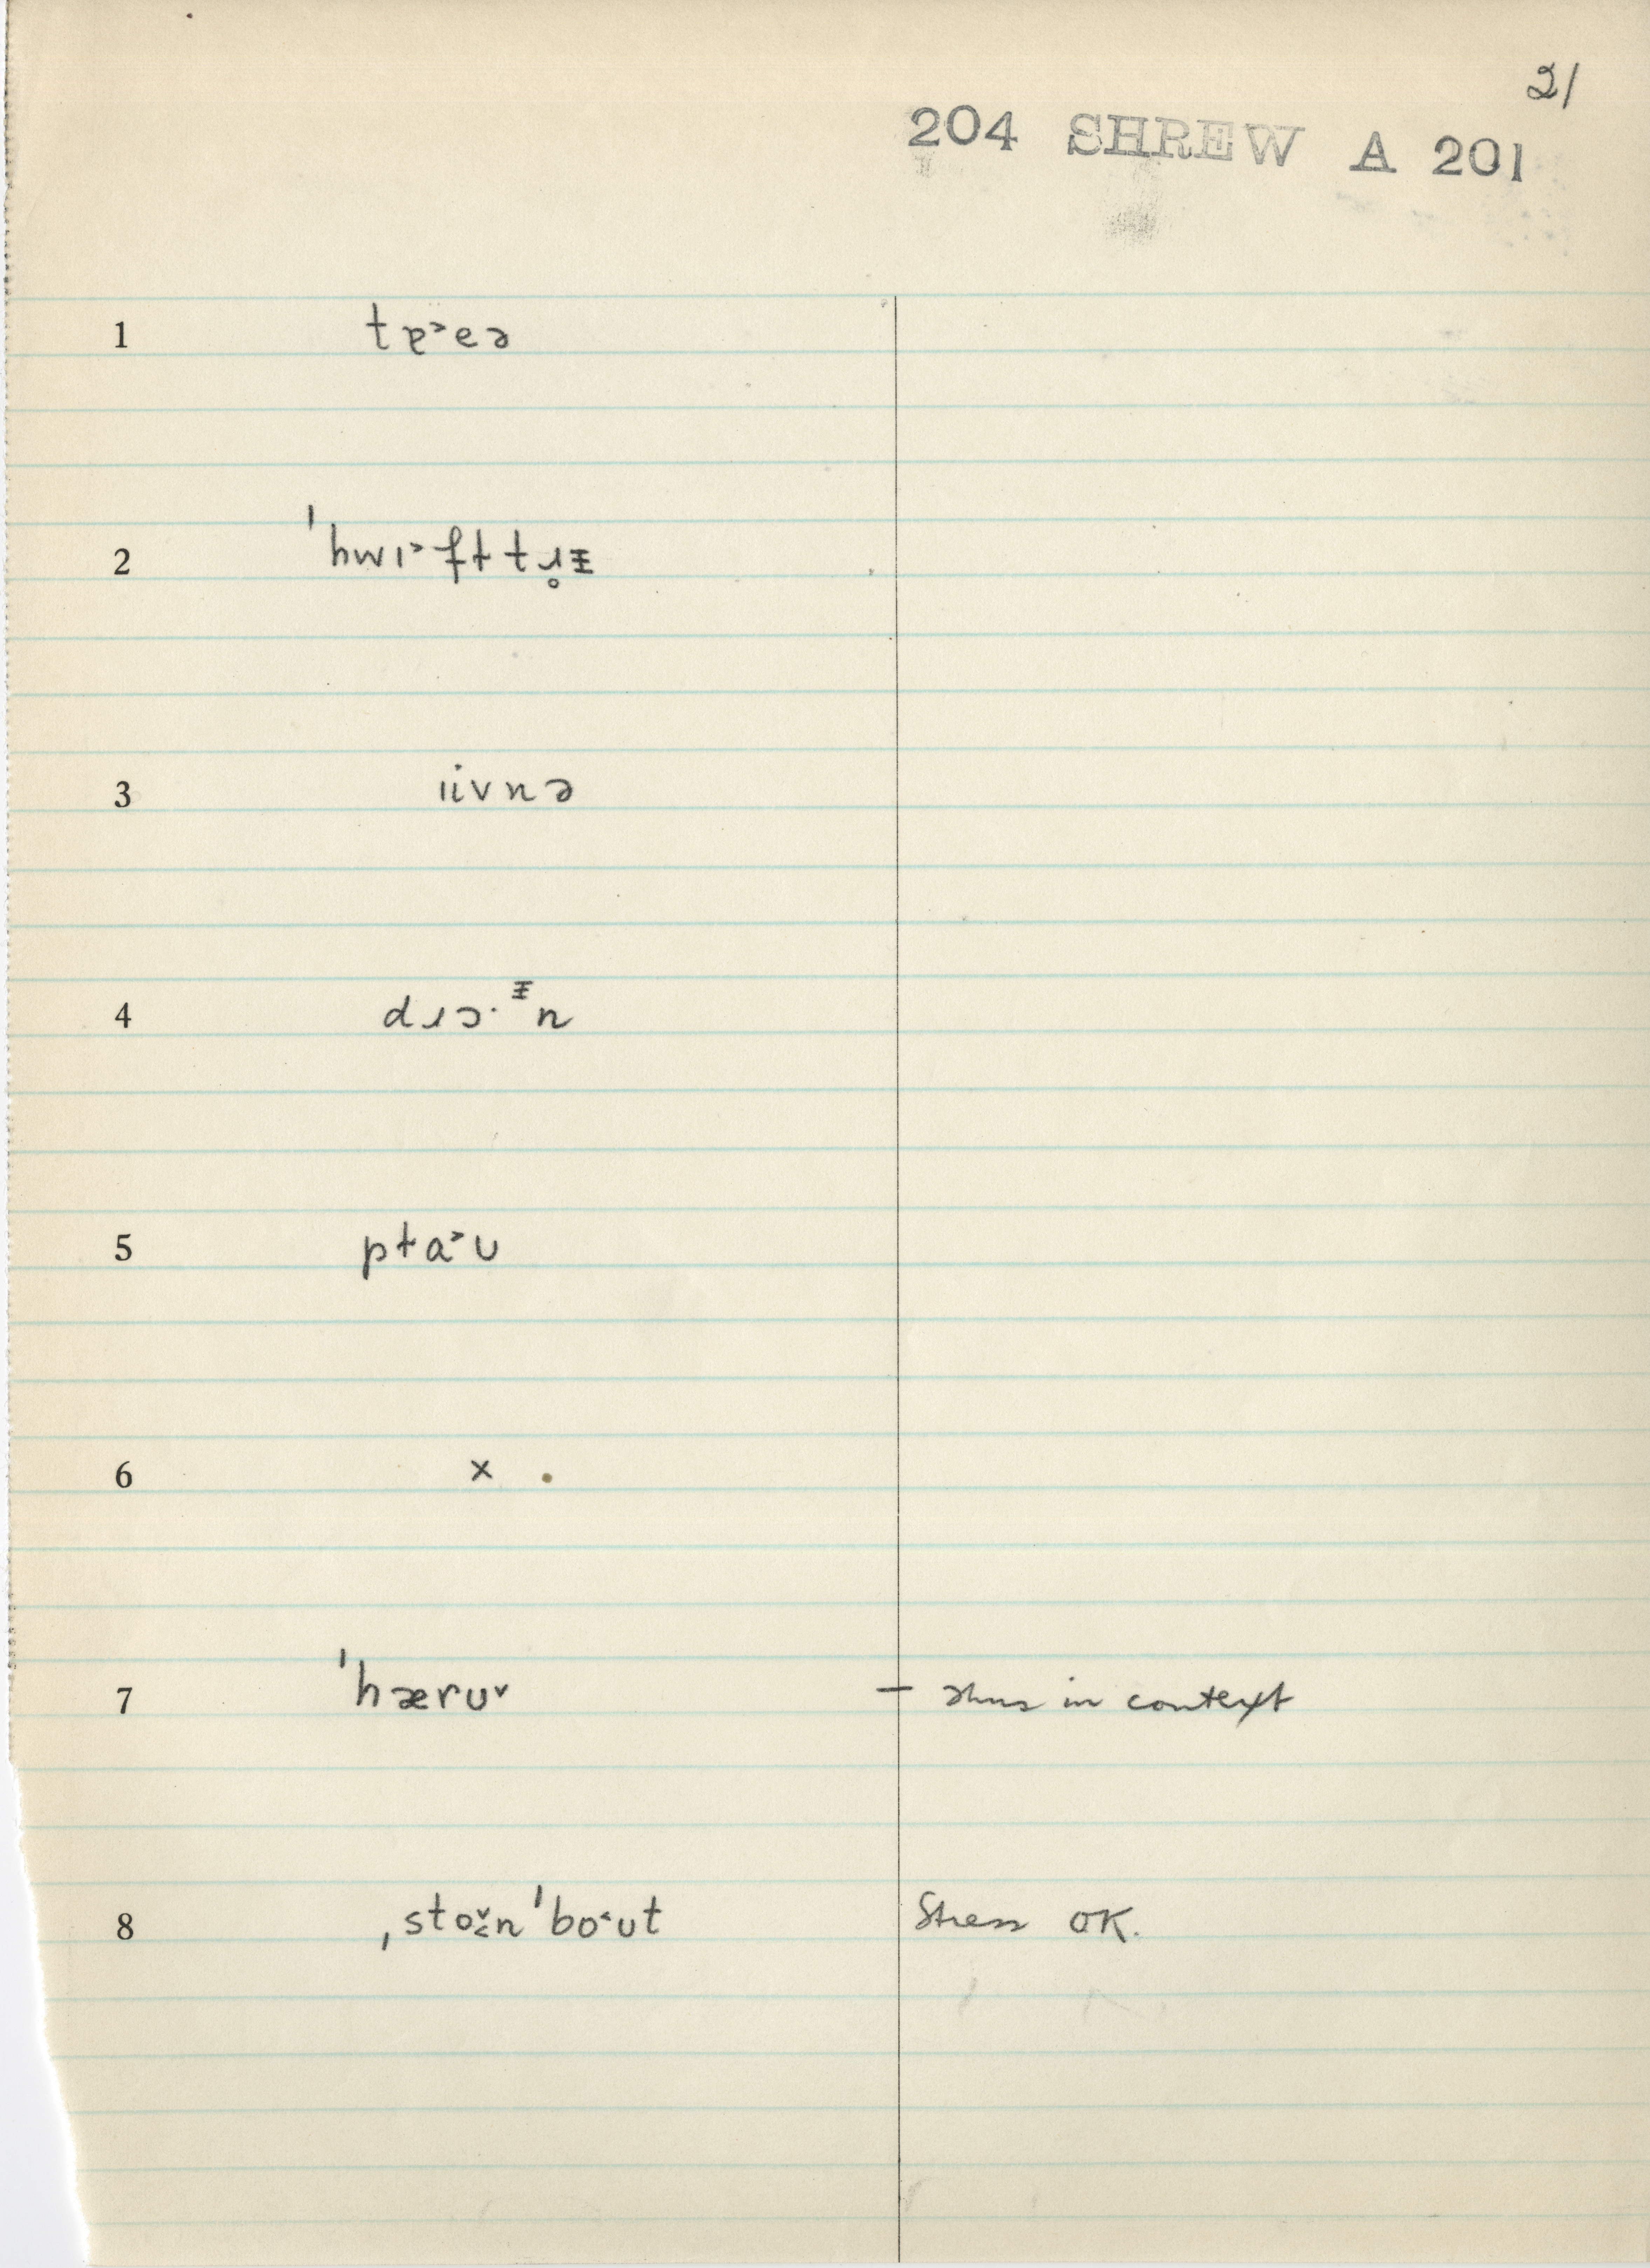 21
204 SHREW A 201
1 tɐ˃eə
2 ˈhwɪ˃fttɹ̥ᵻ
3 ɪivnə
4 dɹɔ·ᵻn
5 pta˃ʊ
6 x
7 ˈhærʊ˅ – thus in context
8 ˌsto˅̬nˈbo˂ʊt Stress OK.